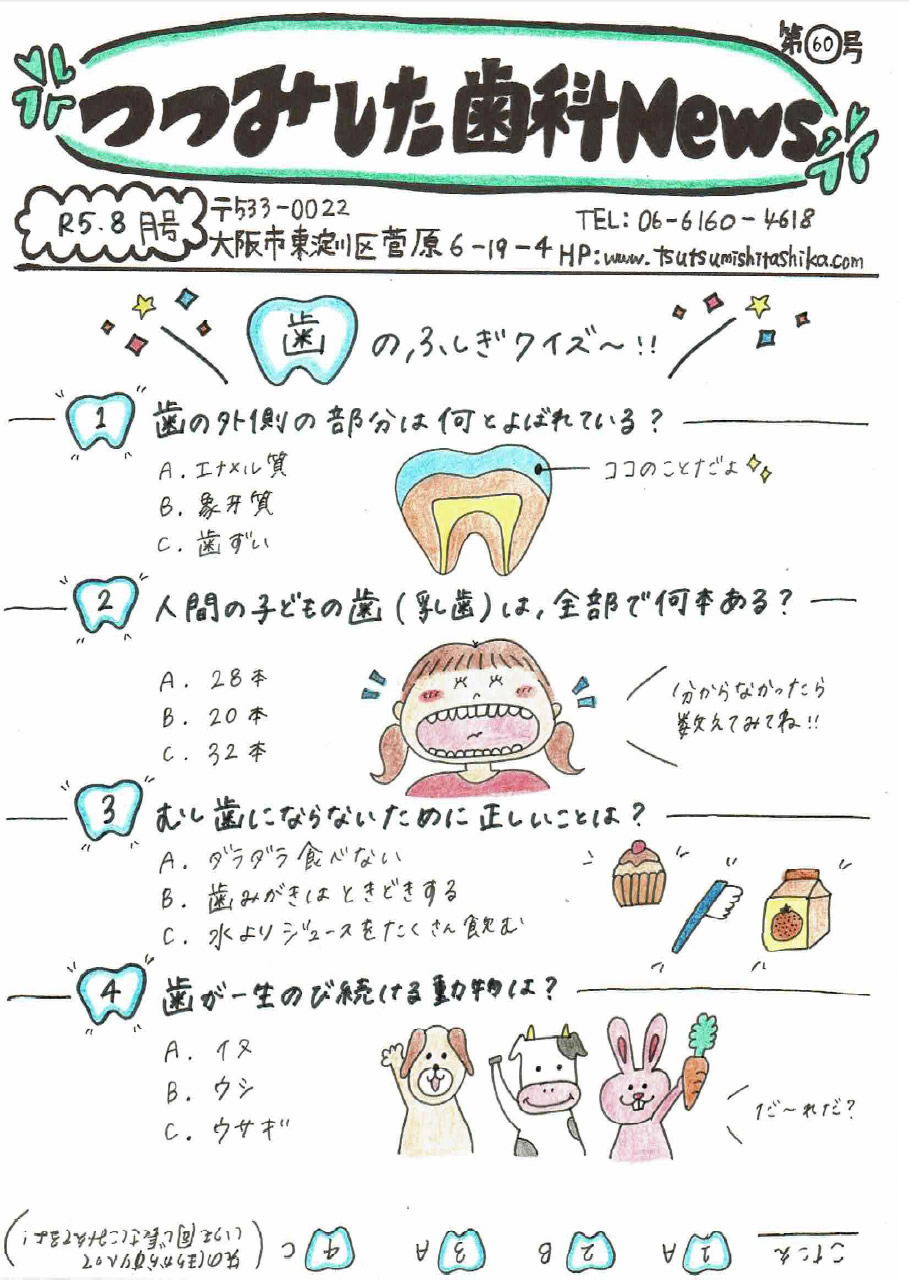 第60号
つつみした歯科News
R5.8月号
〒533-0022
大阪市東淀川区菅原6-19-4
TEL: 06-6160-4618
HP: www.tsutsumishitashika.com
歯のふしぎクイズ〜!!
1 歯の外側の部分は何とよばれている?
A. エナメル質
B. 象牙質
C. 歯ずい
ココのことだよ
2 人間の子どもの歯(乳歯)は、全部で何本ある?
A. 28本
B. 20本
C. 32本
分からなかったら
数えてみてね!!
3 むし歯にならないために正しいことは?
A. ダラダラ食べない
B. 歯みがきはときどきする
C. 水よりジュースをたくさん飲む
4 歯が一生のび続ける動物は?
A. イヌ
B. ウシ
C. ウサギ
だ〜れだ?
こたえ 1 A 2 B 3 A 4 C
(先のほうからすりへって
いつも同じ長さに